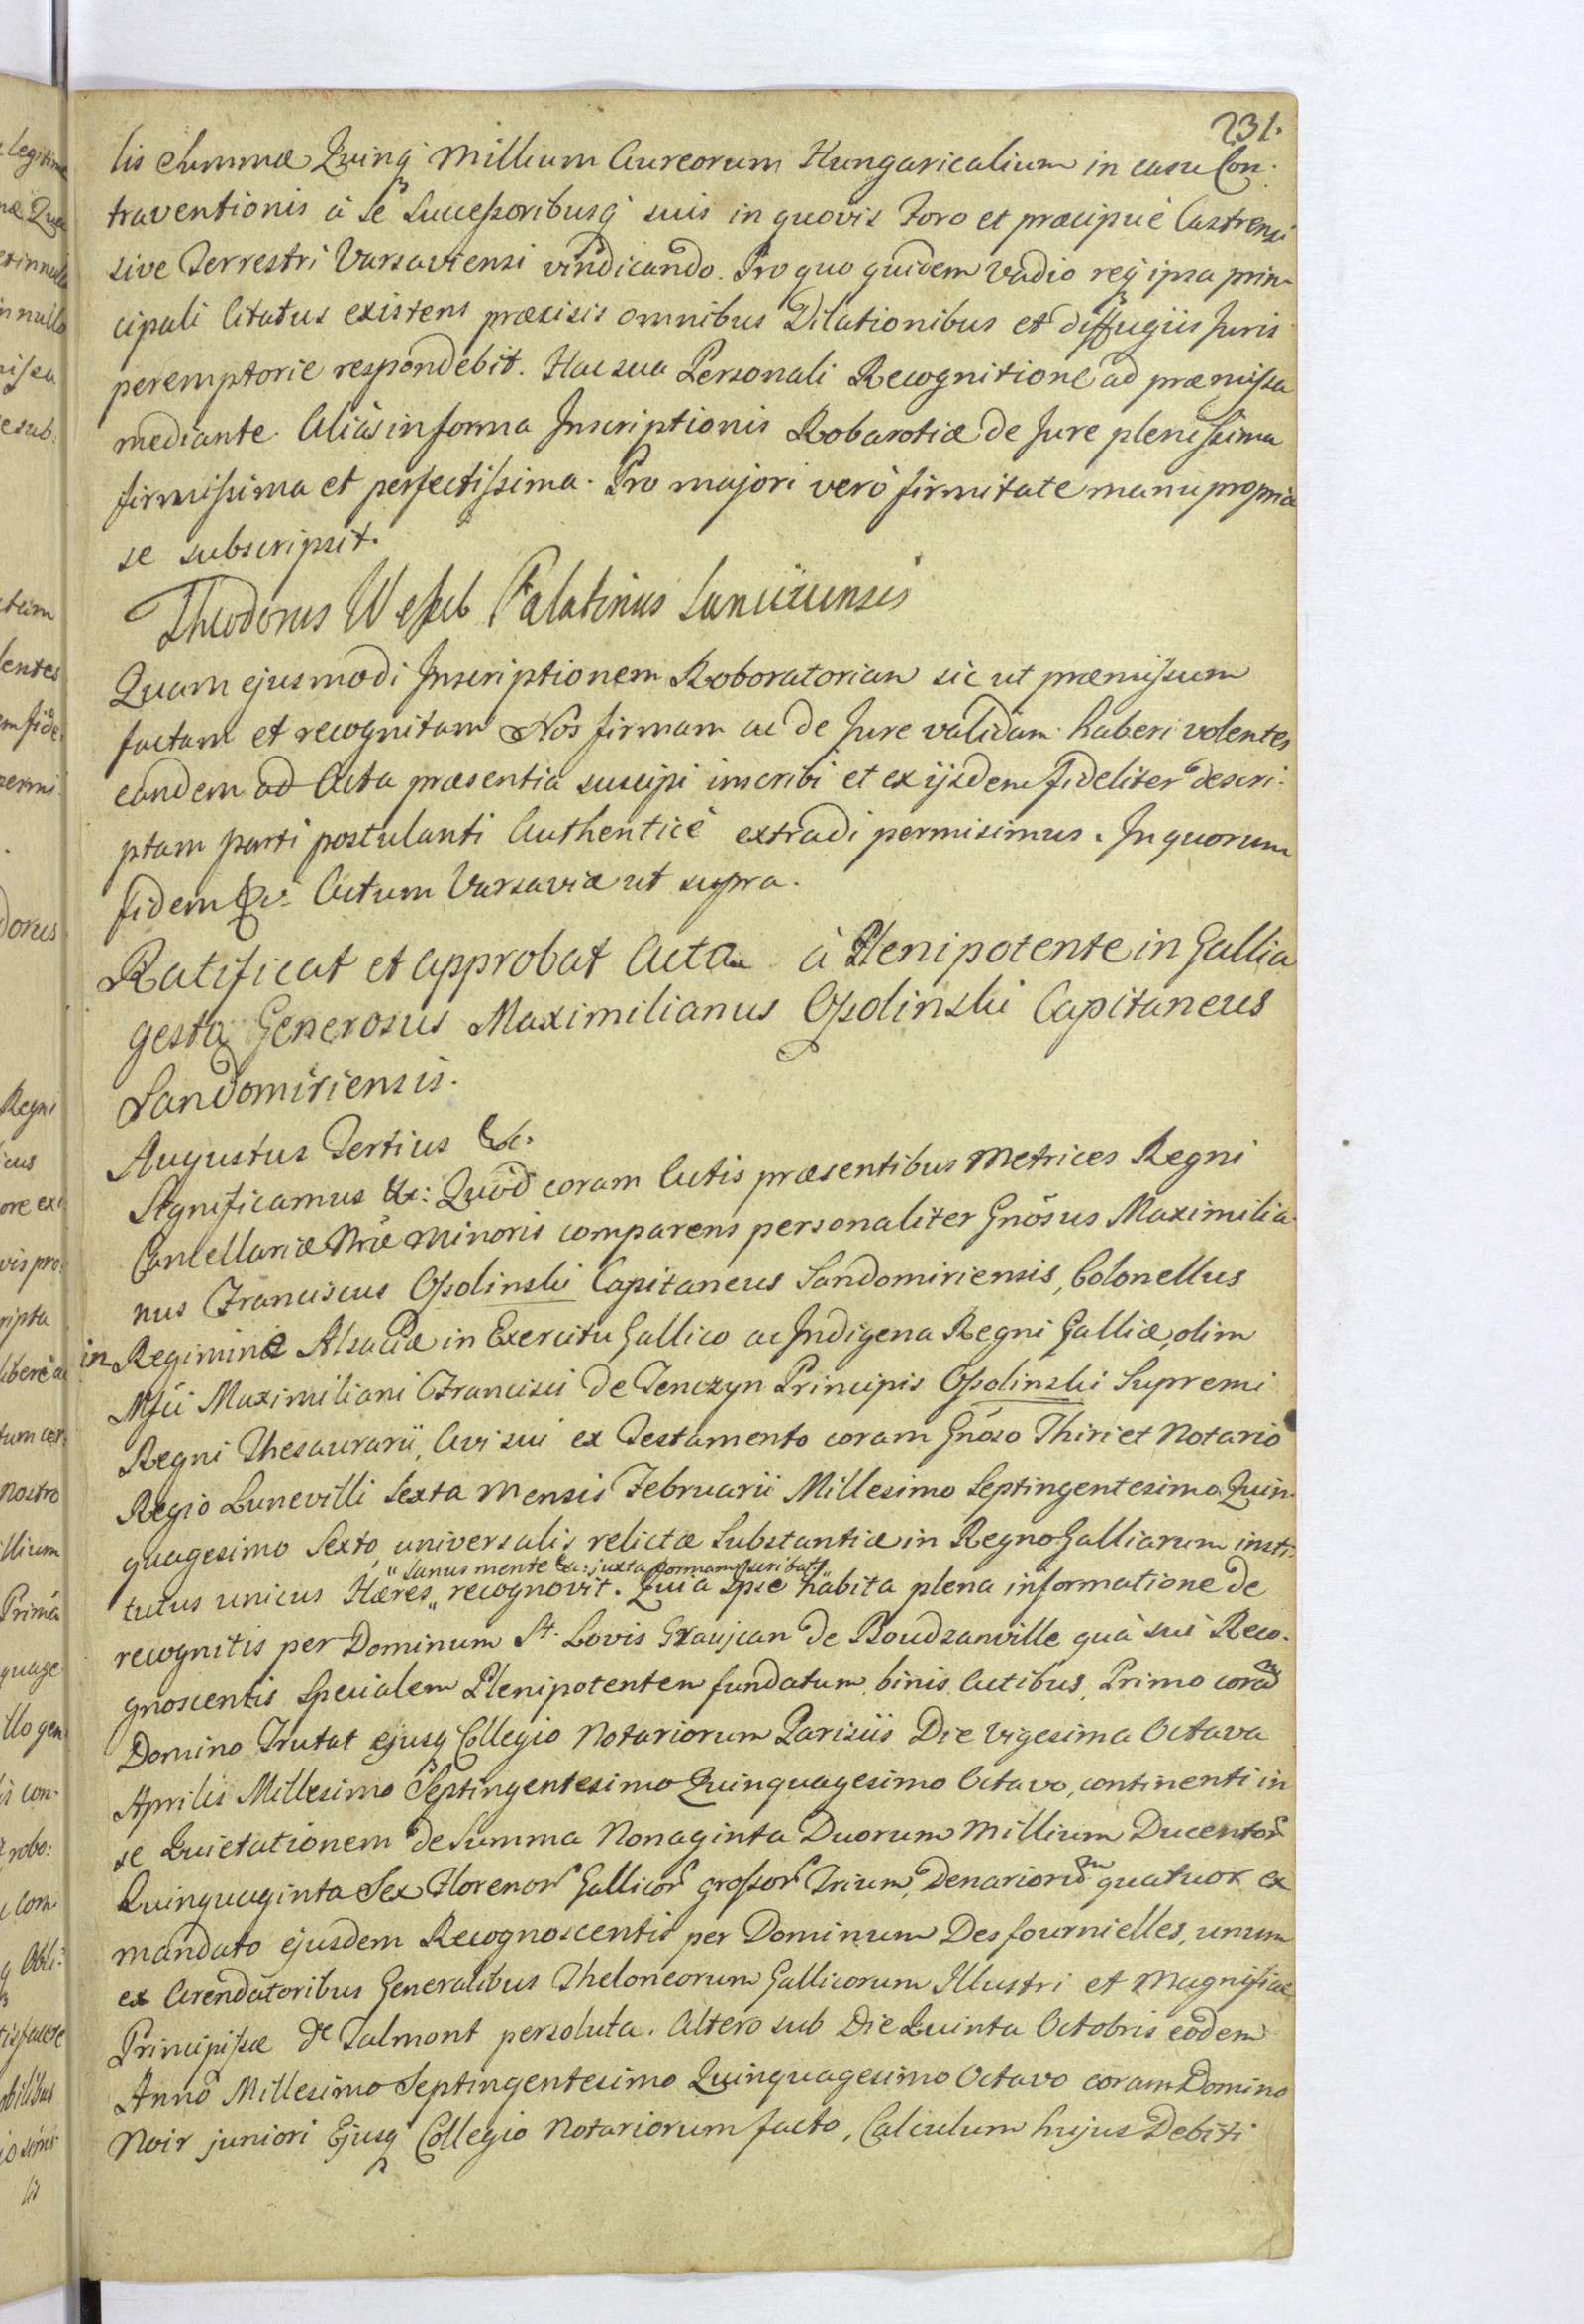 231.
lis Summæ Quinq́ Millium Aureorum Hungaricalium in casu Con-
traventionis à se Successoribusq́ suis in quovis Foro et præcipuè Castrensi
sive Terrestri Varsaviensi vindicando. Pro quo quidem vadio req́ ipsa prin-
cipali Citatus existens præsisis omnibus Dilationibus et diffugiis Juris
peremptorie respondebit. Hac sua Personali Recognitione ad præmissa
mediante. Alias in forma Inscriptionis Robarotiæ de Jure plenissima
firmissima et perfectissima. Pro majori verò firmitate manu propria
se subscripsit.
Theodorus Wessel Palatinus
Quam ejusmodi Inscriptionem Roboratoriam sic ut præmissum
factam et recognitam Nos firmam ac de Jure validam haberi volentes
eandem ad Acta præsentia suscipi inscribi et ex ijsdem fideliter descri-
ptam parti postulanti Authenticè extradi permisimus. In quorum
fidem &c: Actum Varsaviæ ut supra.
Ratificat et approbat Acta à Plenipotente in Gallia
gesta Generosus Maximilianus Ossolinski Capitaneus
Sandomiriensis.
Augustus Tertius &c.
Significamus &c: Quod coram Actis præsentibus Metrices Regni
Cancellariæ Nræ Minoris comparens personaliter Gnosus Maximilia-
nus Franciscus Ossolinski Capitaneus Sandomiriensis, Colonellus
in Regimine Alsaciæ in Exercitu Gallico ac Indigena Regni Galliæ, olim
Maximiliani Francisci de Tenczyn Principis Ossolinski Supremi
Regni Thesaurarii, Avi sui ex Testamento coram Gnoso Thiriet Notario
Regio Lunevilli Sexta Mensis Februarii Millesimo Septingentesimo Quin-
quagesimo Sexto universalis relictæ Substantiæ in Regno Galliarum insti-
"sanus mente &c: juxta formam scribat"
tutus unicus Hæres " recognovit. Quia ipse habita plena informatione de
recognitis per Dominum St. Lovis Graujean de Boudzanville quà sui Reco-
gnoscentis Specialem Plenipotentem fundatum binis Actibus, Primo coram
Domino Trutat ejusq́ Collegio Notariorum Parisiis Die Vigesima Octava
Aprilis Millesimo Septingentesimo Quinquagesimo Octavo, continenti in
se Quietationem de Summa Nonaginta Duorum Millium Ducentor
Quinquaginta Sex Florenor Gallicor grossor Trium, Denariorum quatuor ex
mandato ejusdem Recognoscentis per Dominum Desfournielles, unum
ex Arendatoribus Generalibus Theloneorum Gallicorum Illustri et Magnificæ
Principissæ de Talmont persoluta. Altero sub Die Quinta Octobris eodem
Anno Millesimo Septingentesimo Quinquagesimo Octavo coram Domino
Noir juniori Ejusq́ Collegio Notariorum facto, Calculum hujus Debiti